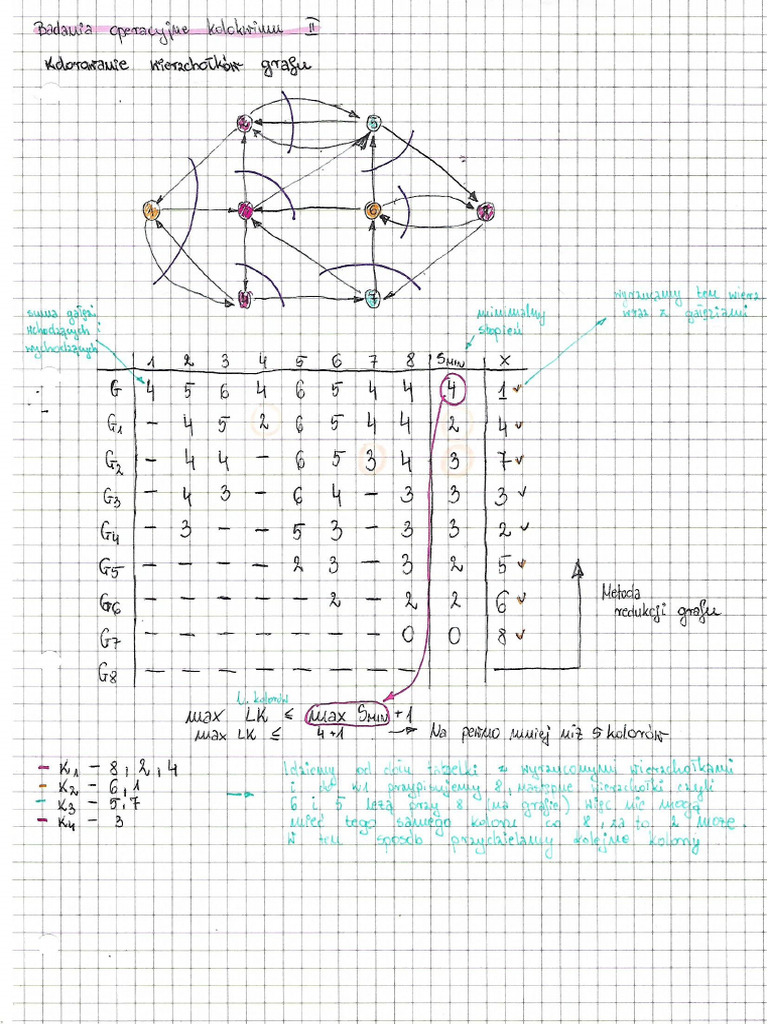 Badania operacyjne kolokwium II
Kolorowanie wierzchołków grafu
2 5
1 3 6 8
4 7
suma gałęzi
wchodzących i
wychodzących
minimalny
stopień
wyrzucamy ten wierz
wraz z gałęziami
1 2 3 4 5 6 7 8 SMIN X
G 4 5 6 4 6 5 4 4 4 1 ✓
G1 - 4 5 2 6 5 4 4 2 4 ✓
G2 - 4 4 - 6 5 3 4 3 7 ✓
G3 - 4 3 - 6 4 - 3 3 3 ✓
G4 - 3 - - 5 3 - 3 3 2 ✓
G5 - - - - 2 3 - 3 2 5 ✓
G6 - - - - - 2 - 2 2 6 ✓
G7 - - - - - - - 0 0 8 ✓
G8 - - - - - - - -
Metoda
redukcji grafu
L. kolorów
max LK ≤ max SMIN + 1
max LK ≤ 4+1 → Na pewno mniej niż 5 kolorów
- K1 - 8, 2, 4
- K2 - 6, 1
- K3 - 5, 7
- K4 - 3
→ Idziemy od dołu tabelki z wyrzuconymi wierzchołkami
i do W1 przypisujemy 8, następne wierzchołki czyli
6 i 5 leżą przy 8 (na grafie) więc nie mogą
mieć tego samego koloru co 8, za to 2 może.
W ten sposób przydzielamy kolejne kolory